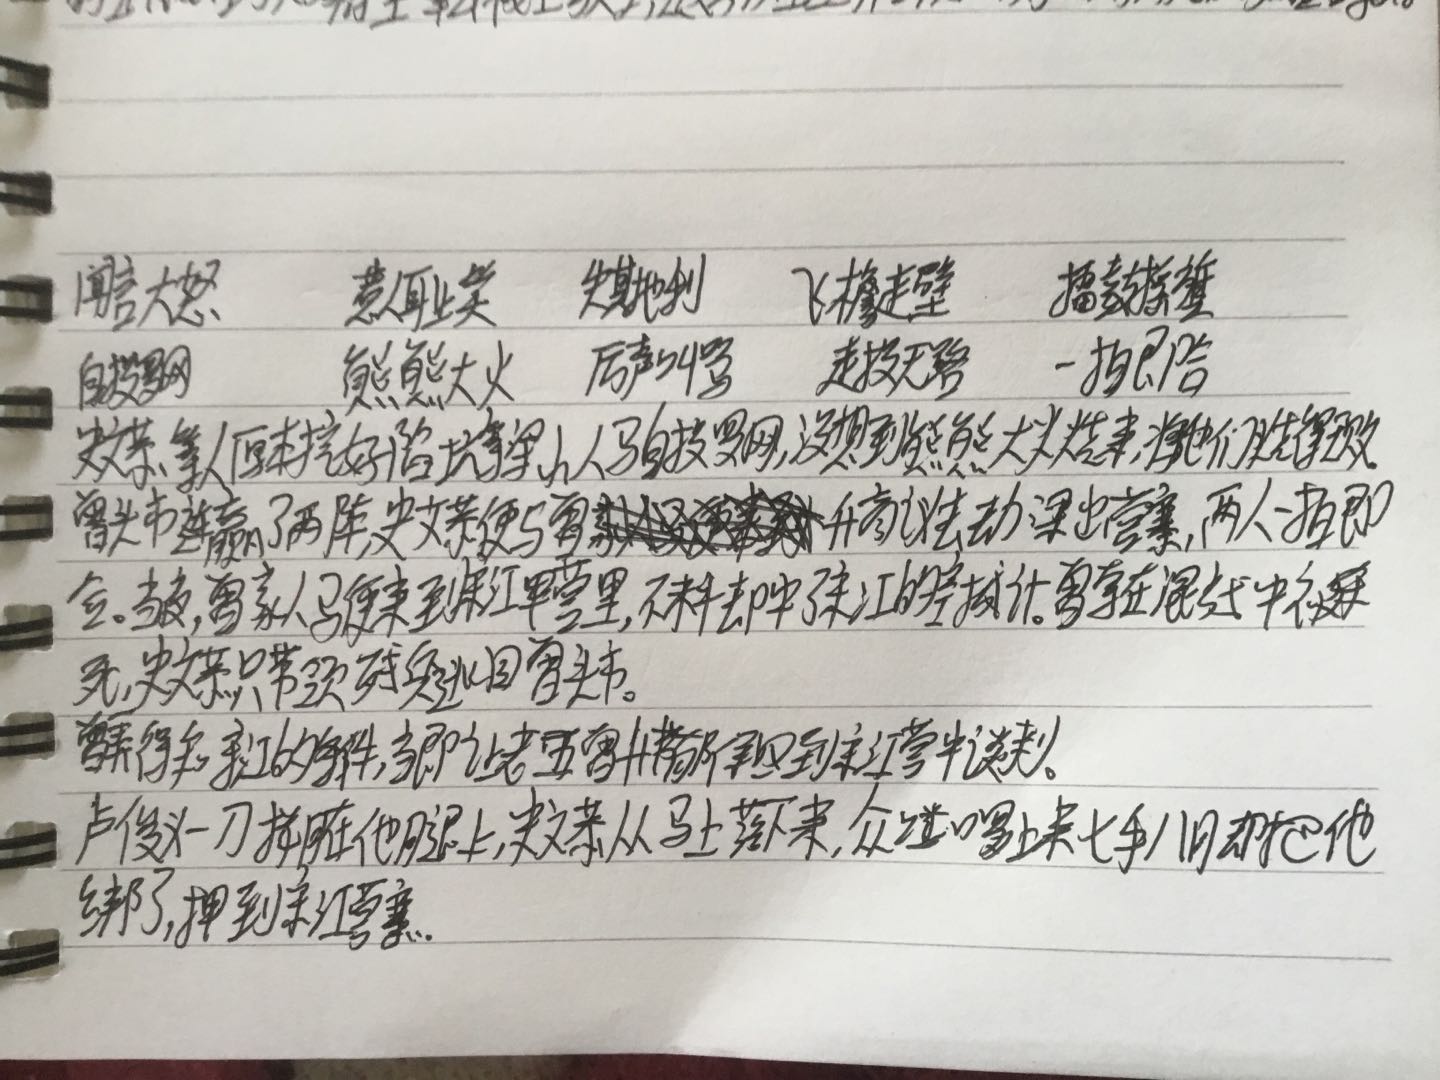 闻言大怒 惹人耻笑 失其地利 飞檐走壁 擂鼓摇
自投罗网 熊熊大火 厉声叫骂 走投无路 一拍即合
史文恭等人原本挖好陷坑等梁山人马自投罗网,没想到熊熊大火烧来,将他们烧得大败
曾头市连赢了两阵,史文恭便与曾 升商议去劫梁山营寨,两人一拍即
合。当夜,曾家人马便来到宋江军营里,不料却中了宋江的空城计。曾索在混战中被杀
死,史文恭只带领残兵逃回曾头市。
曾弄得知宋江的条件,当即让老五曾升带 到宋江营中谈判。
卢俊义一刀搠在他腿上,史文恭从马上落下来,众喽啰上来七手八脚把他
绑了,押到宋江营寨.